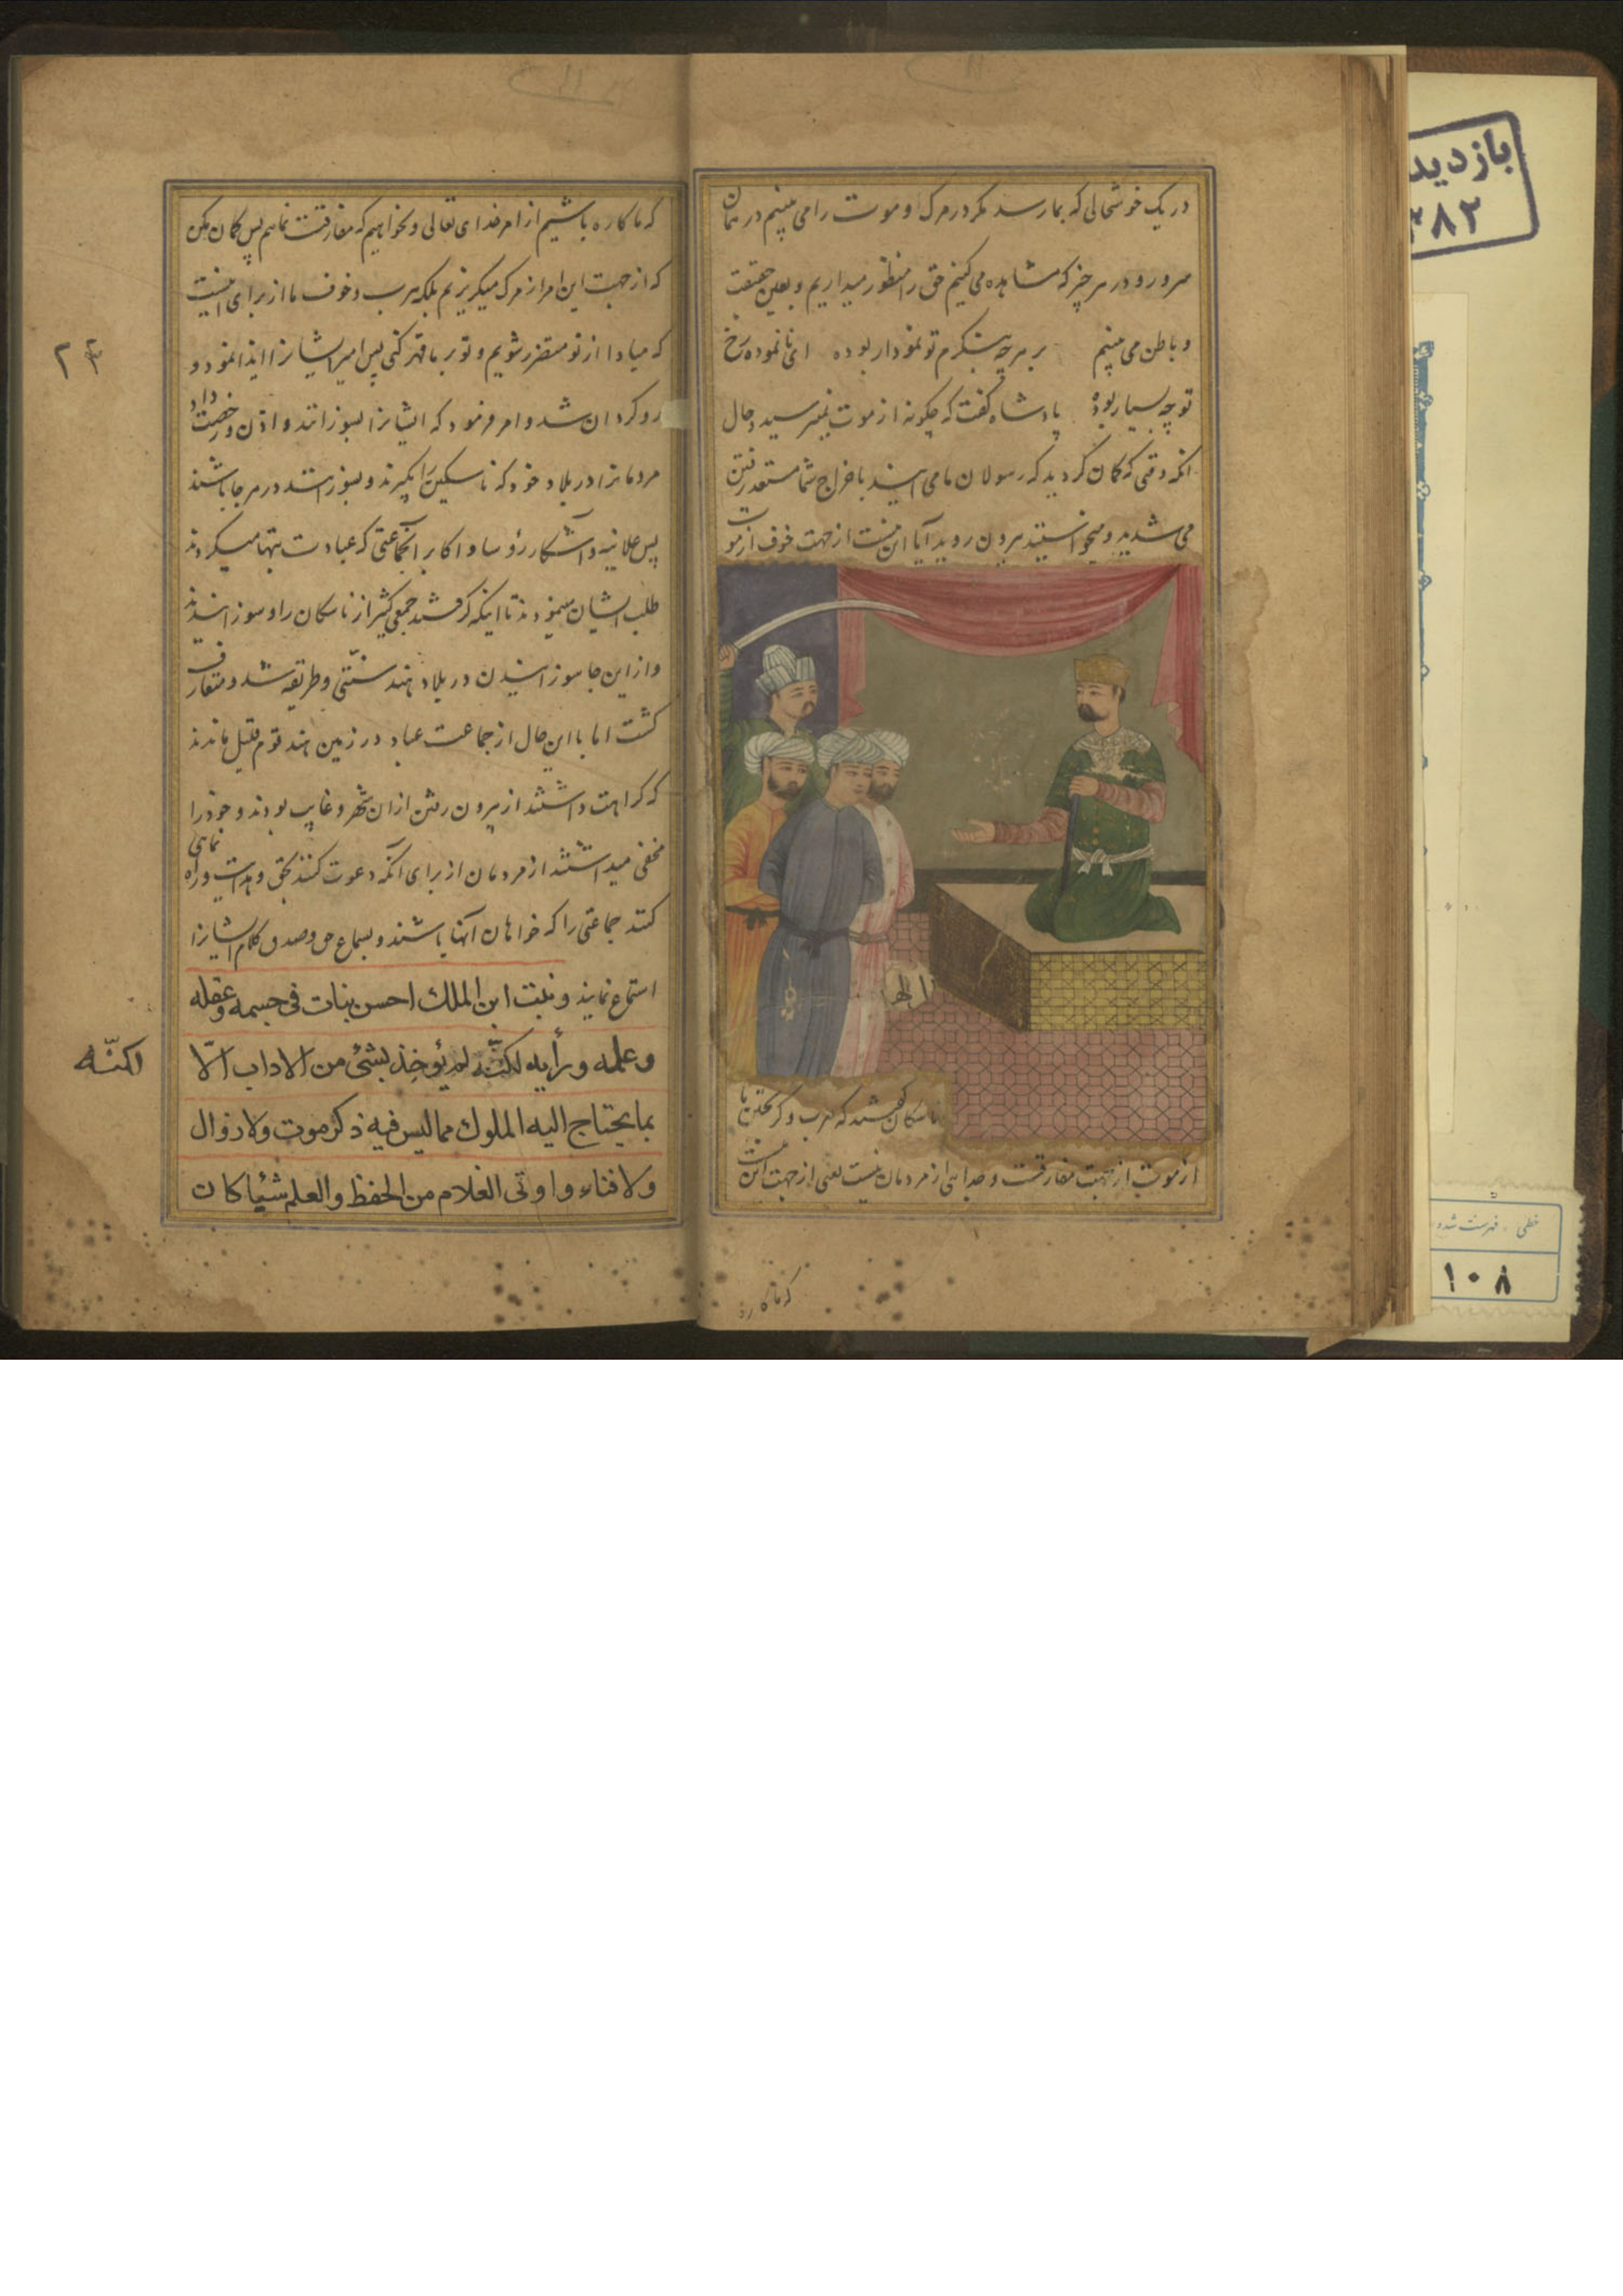 در یک خوشحالی که بما رسد مگر در مرک او موت را می بینیم در همان
سرور و در هر چیز که مشاهده می کنیم حق را منظور میداریم و بعین حقیقت
و باطن می بینیم بر هرچه بنگرم تو نمودار بوده ای نانموده رخ
تو چه بسیار بوده پادشاه گفت که چگونه از موت نمیترسید و حال
انکه وقتی که کمان کردید که رسولان ما می ایند باخراج شما مستعد رفتن
می شدید و میخواستید بیرون روید آیا این نیست از جهت خوف از موت
ناسکان گفتند که هرب و کریختن ما
از موت از جهت مفارقت و جدایی از مردمان نیست یعنی از جهت این نیست
که ما کاره
که ما کاره باشیم از امر خدای تعالی و نخواهیم که مفارقت نمائیم پس کمان مکن
که از جهت این امر از مرک میکریزیم بلکه هرب و خوف ما از برای اینست
که مبادا از تو متضرر شویم و تو بر ما قهر کنی پس امیر ایشانرا ایذا نمود و
رو کردان شد و امر فرمود که ایشانرا بسوزانند و اذن و رخصت داد
مردمانرا در بلاد خود که ناسکین را بگیرند و بسوزانند در هر جا باشند
پس علانیه و آشکار رؤسا و اکابر انجماعتی که عبادت بتها میکردند
طلب ایشان مینمودند تا اینکه کرفتند جمعی کثیر از ناسکان را و سوزانیدند
و از این جا سوزانیدن در بلاد هند سنّتی و طریقه شد و متعارف
کشت اما با این حال از جماعت عباد در زمین هند قوم قلیل ماندند
که کراهت داشتند از بیرون رفتن از ان شهر و غایب بودند و خود را
مخفی میداشتند از مردمان از برای آنکه دعوت کنند بحق و هدایت و راه نمایی
کنند جماعتی را که خواهان آنها باشند و بسماع حق و صدق کلام ایشانرا
استماع نمایند و نبت ابن الملك احسن بنات فی جسمه و عقله
و علمه و رأیه لکنّه لم یؤخذ بشئ من الاداب الّا
بما یحتاج الیه الملوك مما لیس فیه ذکر موت ولا زوال
ولا فناء و اوتی الغلام من الحفظ والعلم شئیا کان
لکنّه
بازدید
۳۸۲
خطی - فهرست شده
۱۰۸